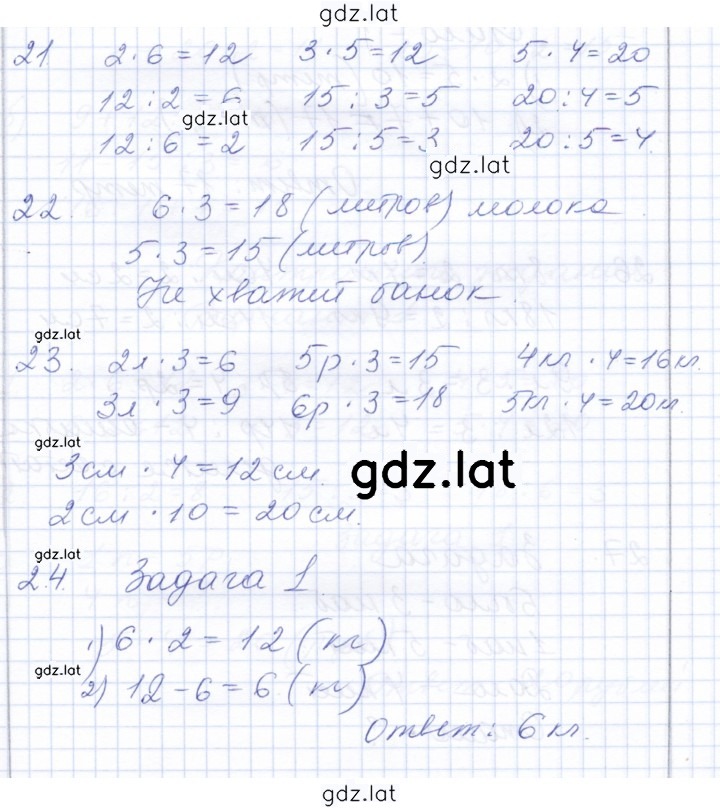 gdz.lat
21. 2·6=12 3·5=12 5·4=20
12:2=6 15:3=5 20:4=5
gdz.lat
12:6=2 15:5=3 20:5=4
gdz.lat
22. 6·3=18 (литров) молока
5·3=15 (литров)
Не хватит банок.
gdz.lat
23. 2л·3=6 5р·3=15 4кг·4=16кг.
3л·3=9 6р·3=18 5кг·4=20кг.
gdz.lat
3см·4=12см.
gdz.lat
2см·10=20см.
gdz.lat
24. Задача 1
1) 6·2=12 (кг)
gdz.lat
2) 12-6=6 (кг)
Ответ: 6кг.
gdz.lat